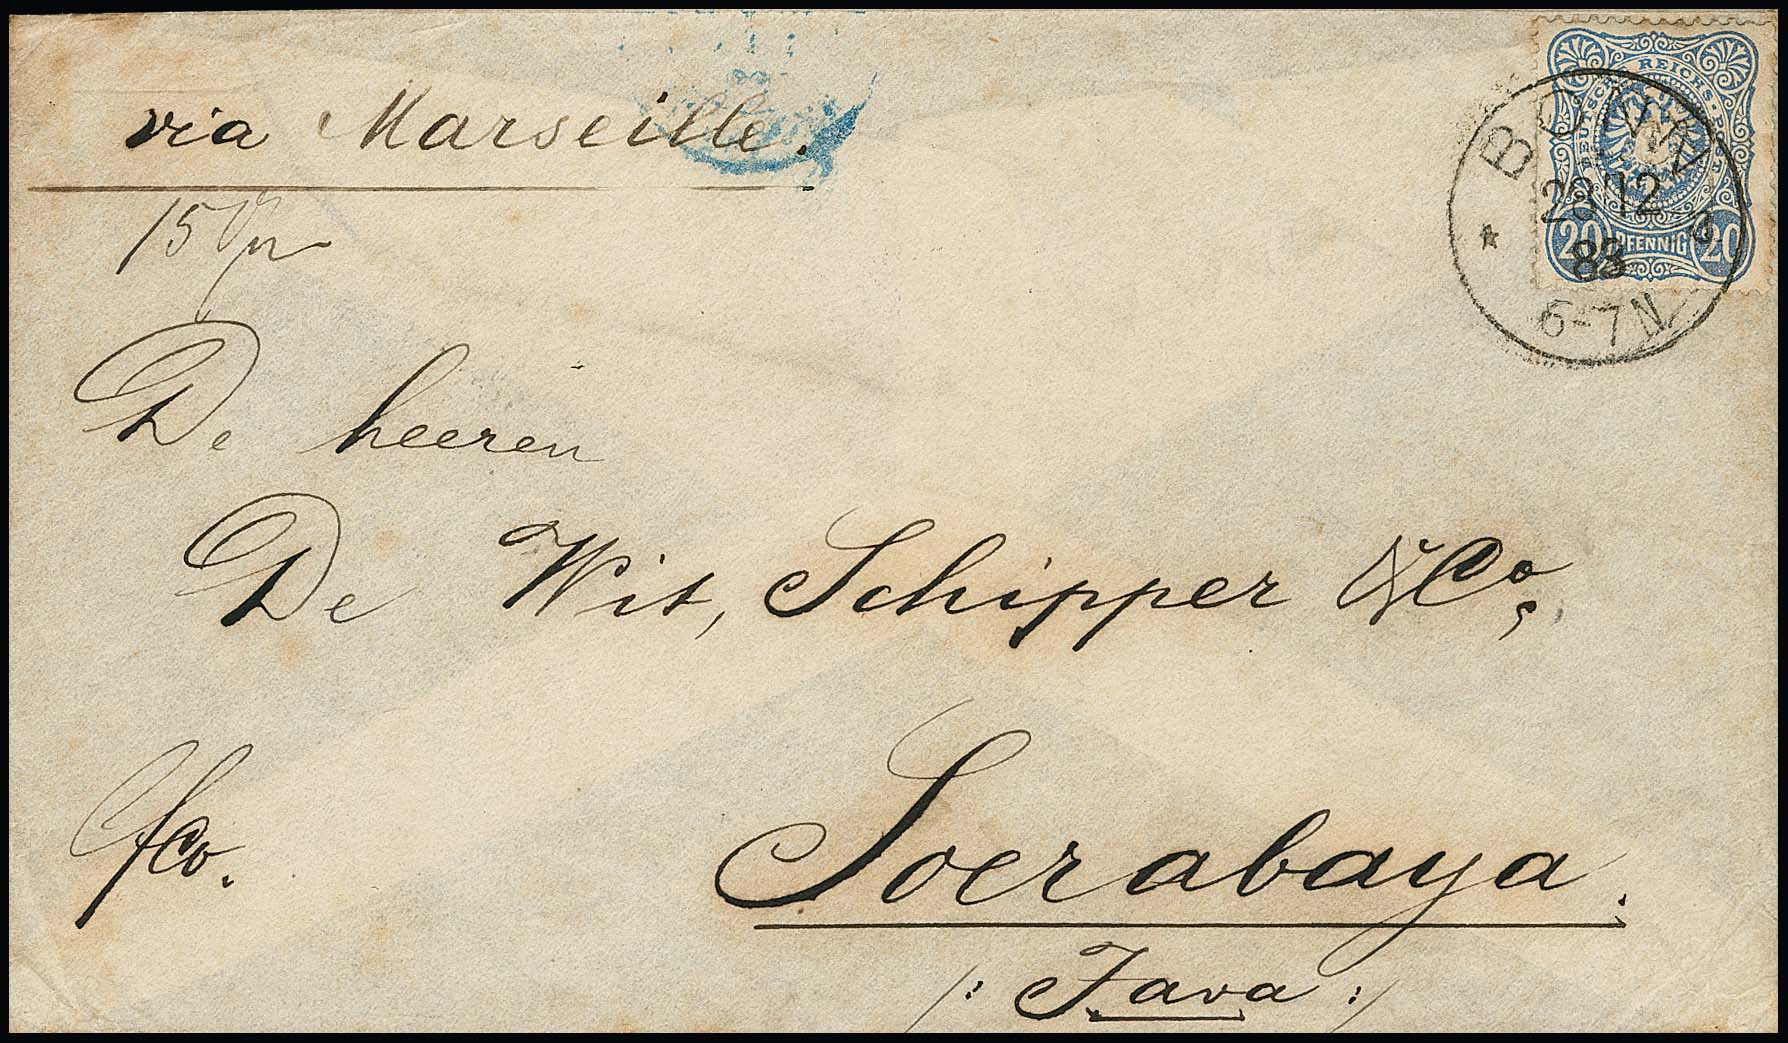 via Marseille.
DEUTSCHE REICHS-POST
20 PFENNIG 20
BONN
28 12
83
6-7N
15
De heeren
De Wit, Schipper & Co,
fco.
Soerabaya.
/: Java :/